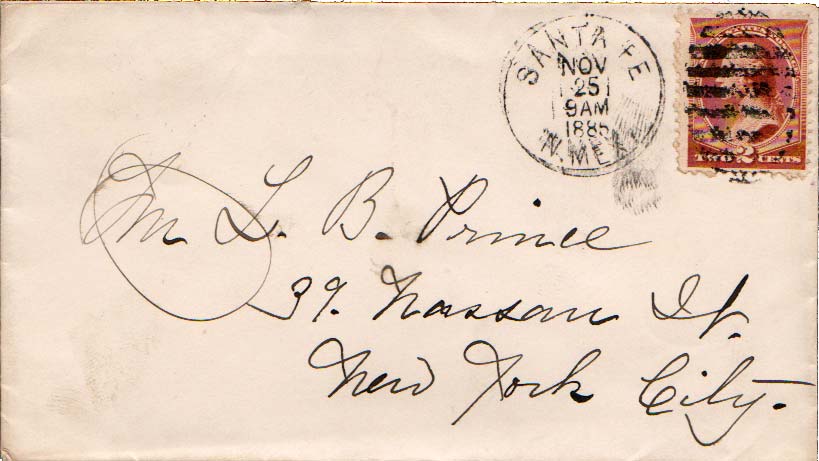 SANTA FE
NOV
25
9AM
1885
N. MEX.
TWO 2 CENTS
Mr L. B. Prince
39. Nassau St.
New York City.